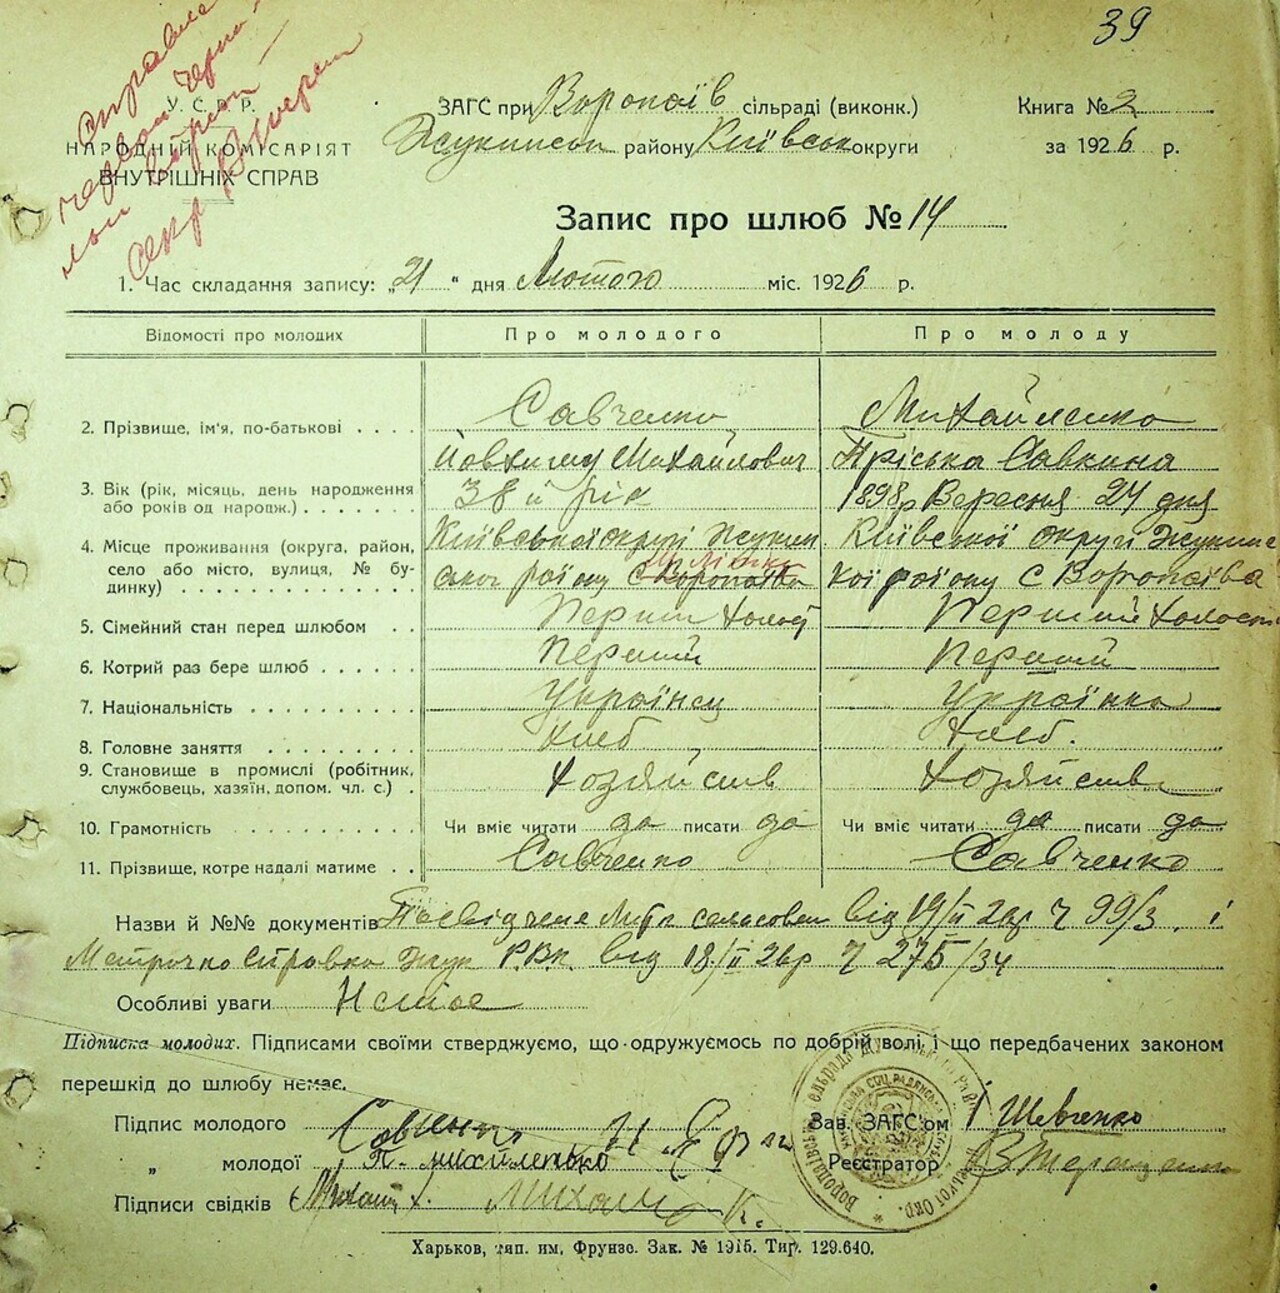 39
У. С. Р. Р.
НАРОДНІЙ КОМІСАРІЯТ
ВНУТРІШНІХ СПРАВ
ЗАГС при Воропаїв сільраді (виконк.)
району Київськ округи
Книга № 2
за 1926 р.
Запис про шлюб № 14
1. Час складання запису: „21" дня Лютого міс. 1926 р.
Відомості про молодих Про молодого Про молоду
2. Прізвище, ім'я, по-батькові . . . . Савченко Михайленко
Йовхиму Михайлович Пріська Савкина
3. Вік (рік, місяць, день народження 38 й рік 1898р Вересня 24 дня
або років од народж.) . . . . . . .
4. Місце проживання (округа, район, Київської округі Жукин Київської округи Жукинс
село або місто, вулиця, № бу- ської району с Воропаїва кої району с Воропаїва
динку) . . . . . . . . . . . . . .
5. Сімейний стан перед шлюбом . . Перши холост Перший холост
6. Котрий раз бере шлюб . . . . . . Перший Перший
7. Національність . . . . . . . . . . Українец Українка
8. Головне заняття . . . . . . . . . Хлеб Хлеб.
9. Становище в промислі (робітник, Хозяйств Хозяйств
службовець, хазяїн, допом. чл. с.) .
10. Грамотність . . . . . . . . . . Чи вміє читати да писати да Чи вміє читати да писати да
11. Прізвище, котре надалі матиме . . Савченко Савченко
Назви й №№ документів від 19/II 26р ч 99/3, і
Метрична Справка Жук Р.В.к. від 18/II 26р ч 275/34
Особливі уваги Немає
Підписка молодих. Підписами своїми стверджуємо, що одружуємось по добрій волі, і що передбачених законом
перешкід до шлюбу немає.
Підпис молодого Савченко Зав. ЗАГС'ом Шевченко
„ молодої П. михиленько Реєстратор В Терещенко
Підписи свідків Михайл
Харьков, тип. им. Фрунзе. Зак. № 1915. Тир. 129.640.